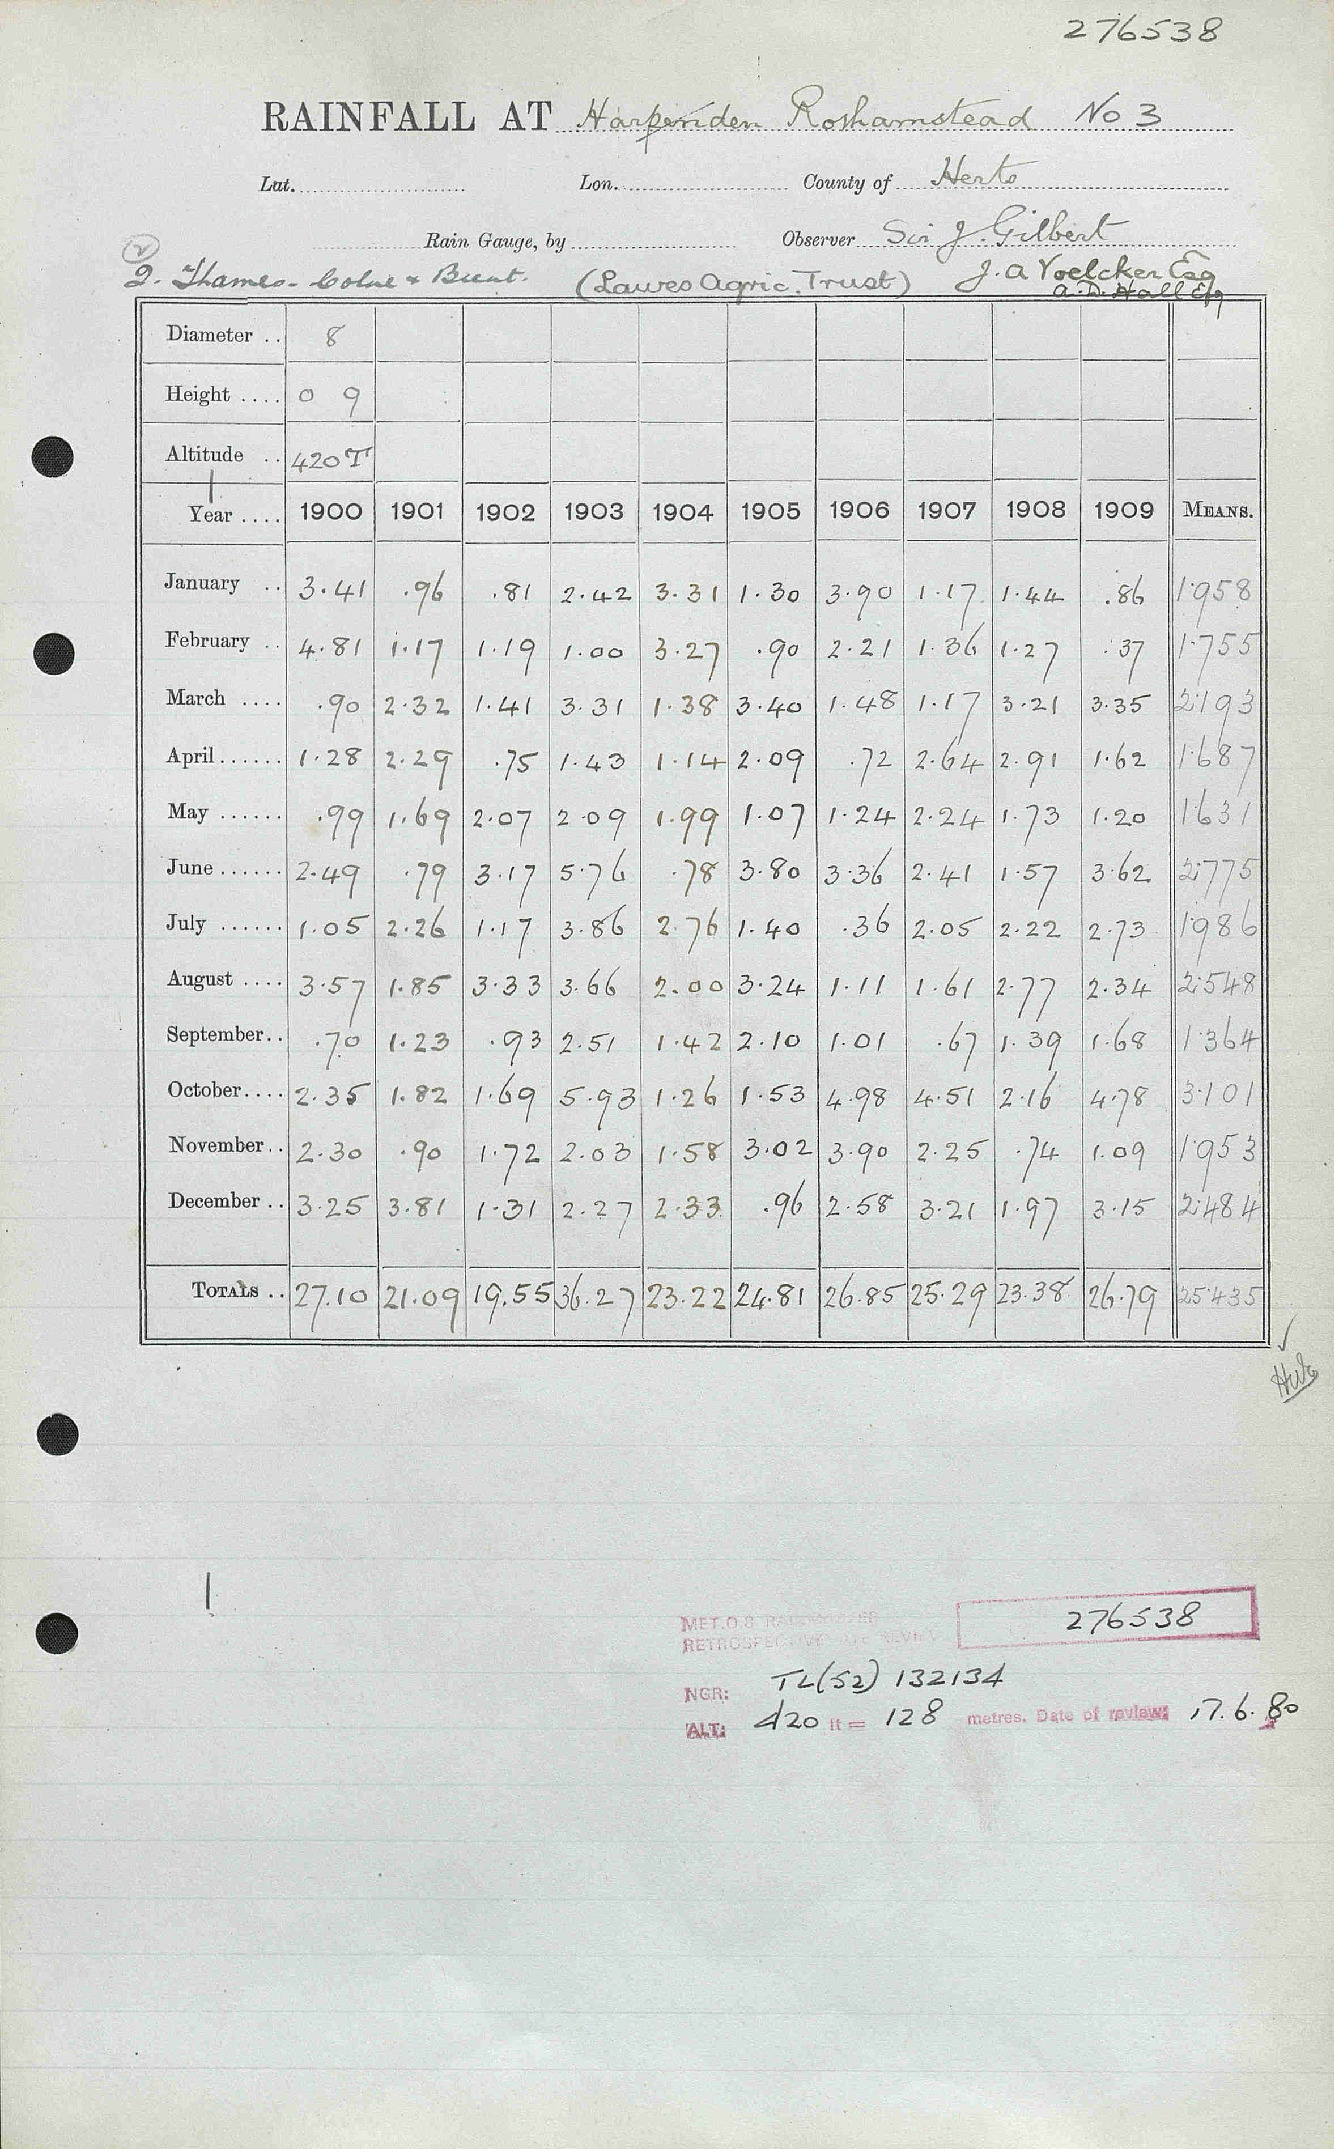 276538
RAINFALL AT Harpenden Rothamstead No 3
Lat. Lon. County of Herts
Rain Gauge, by Observer Sir J. Gilbert
2
2. Thames - Colne & Brent. (Lawes Agric. Trust) J. A Voelcker Esq
A. D. Hall Esq
Diameter .. 8
Height .... 0 9
Altitude .. 420T
Year .... 1900 1901 1902 1903 1904 1905 1906 1907 1908 1909 MEANS.
January .. 3.41 .96 .81 2.42 3.31 1.30 3.90 1.17 1.44 .86 1.958
February .. 4.81 1.17 1.19 1.00 3.27 .90 2.21 1.36 1.27 .37 1.755
March .... .90 2.32 1.41 3.31 1.38 3.40 1.48 1.17 3.21 3.35 2.193
April ...... 1.28 2.29 .75 1.43 1.14 2.09 .72 2.64 2.91 1.62 1.687
May ...... .99 1.69 2.07 2.09 1.99 1.07 1.24 2.24 1.73 1.20 1.631
June ...... 2.49 .79 3.17 5.76 .78 3.80 3.36 2.41 1.57 3.62 2.775
July ...... 1.05 2.26 1.17 3.86 2.76 1.40 .36 2.05 2.22 2.73 1.986
August .... 3.57 1.85 3.33 3.66 2.00 3.24 1.11 1.61 2.77 2.34 2.548
September.. .70 1.23 .93 2.51 1.42 2.10 1.01 .67 1.39 1.68 1.364
October.... 2.35 1.82 1.69 5.93 1.26 1.53 4.98 4.51 2.16 4.78 3.101
November.. 2.30 .90 1.72 2.03 1.58 3.02 3.90 2.25 .74 1.09 1.953
December .. 3.25 3.81 1.31 2.27 2.33 .96 2.58 3.21 1.97 3.15 2.484
TOTALS .. 27.10 21.09 19.55 36.27 23.22 24.81 26.85 25.29 23.38 26.79 25.435
MET.O.8 RAINMASTER
RETROSPECTIVE SITE REVIEW 276538
NGR: TL(52) 132134
ALT: 420 ft = 128 metres. Date of review: 17.6.80